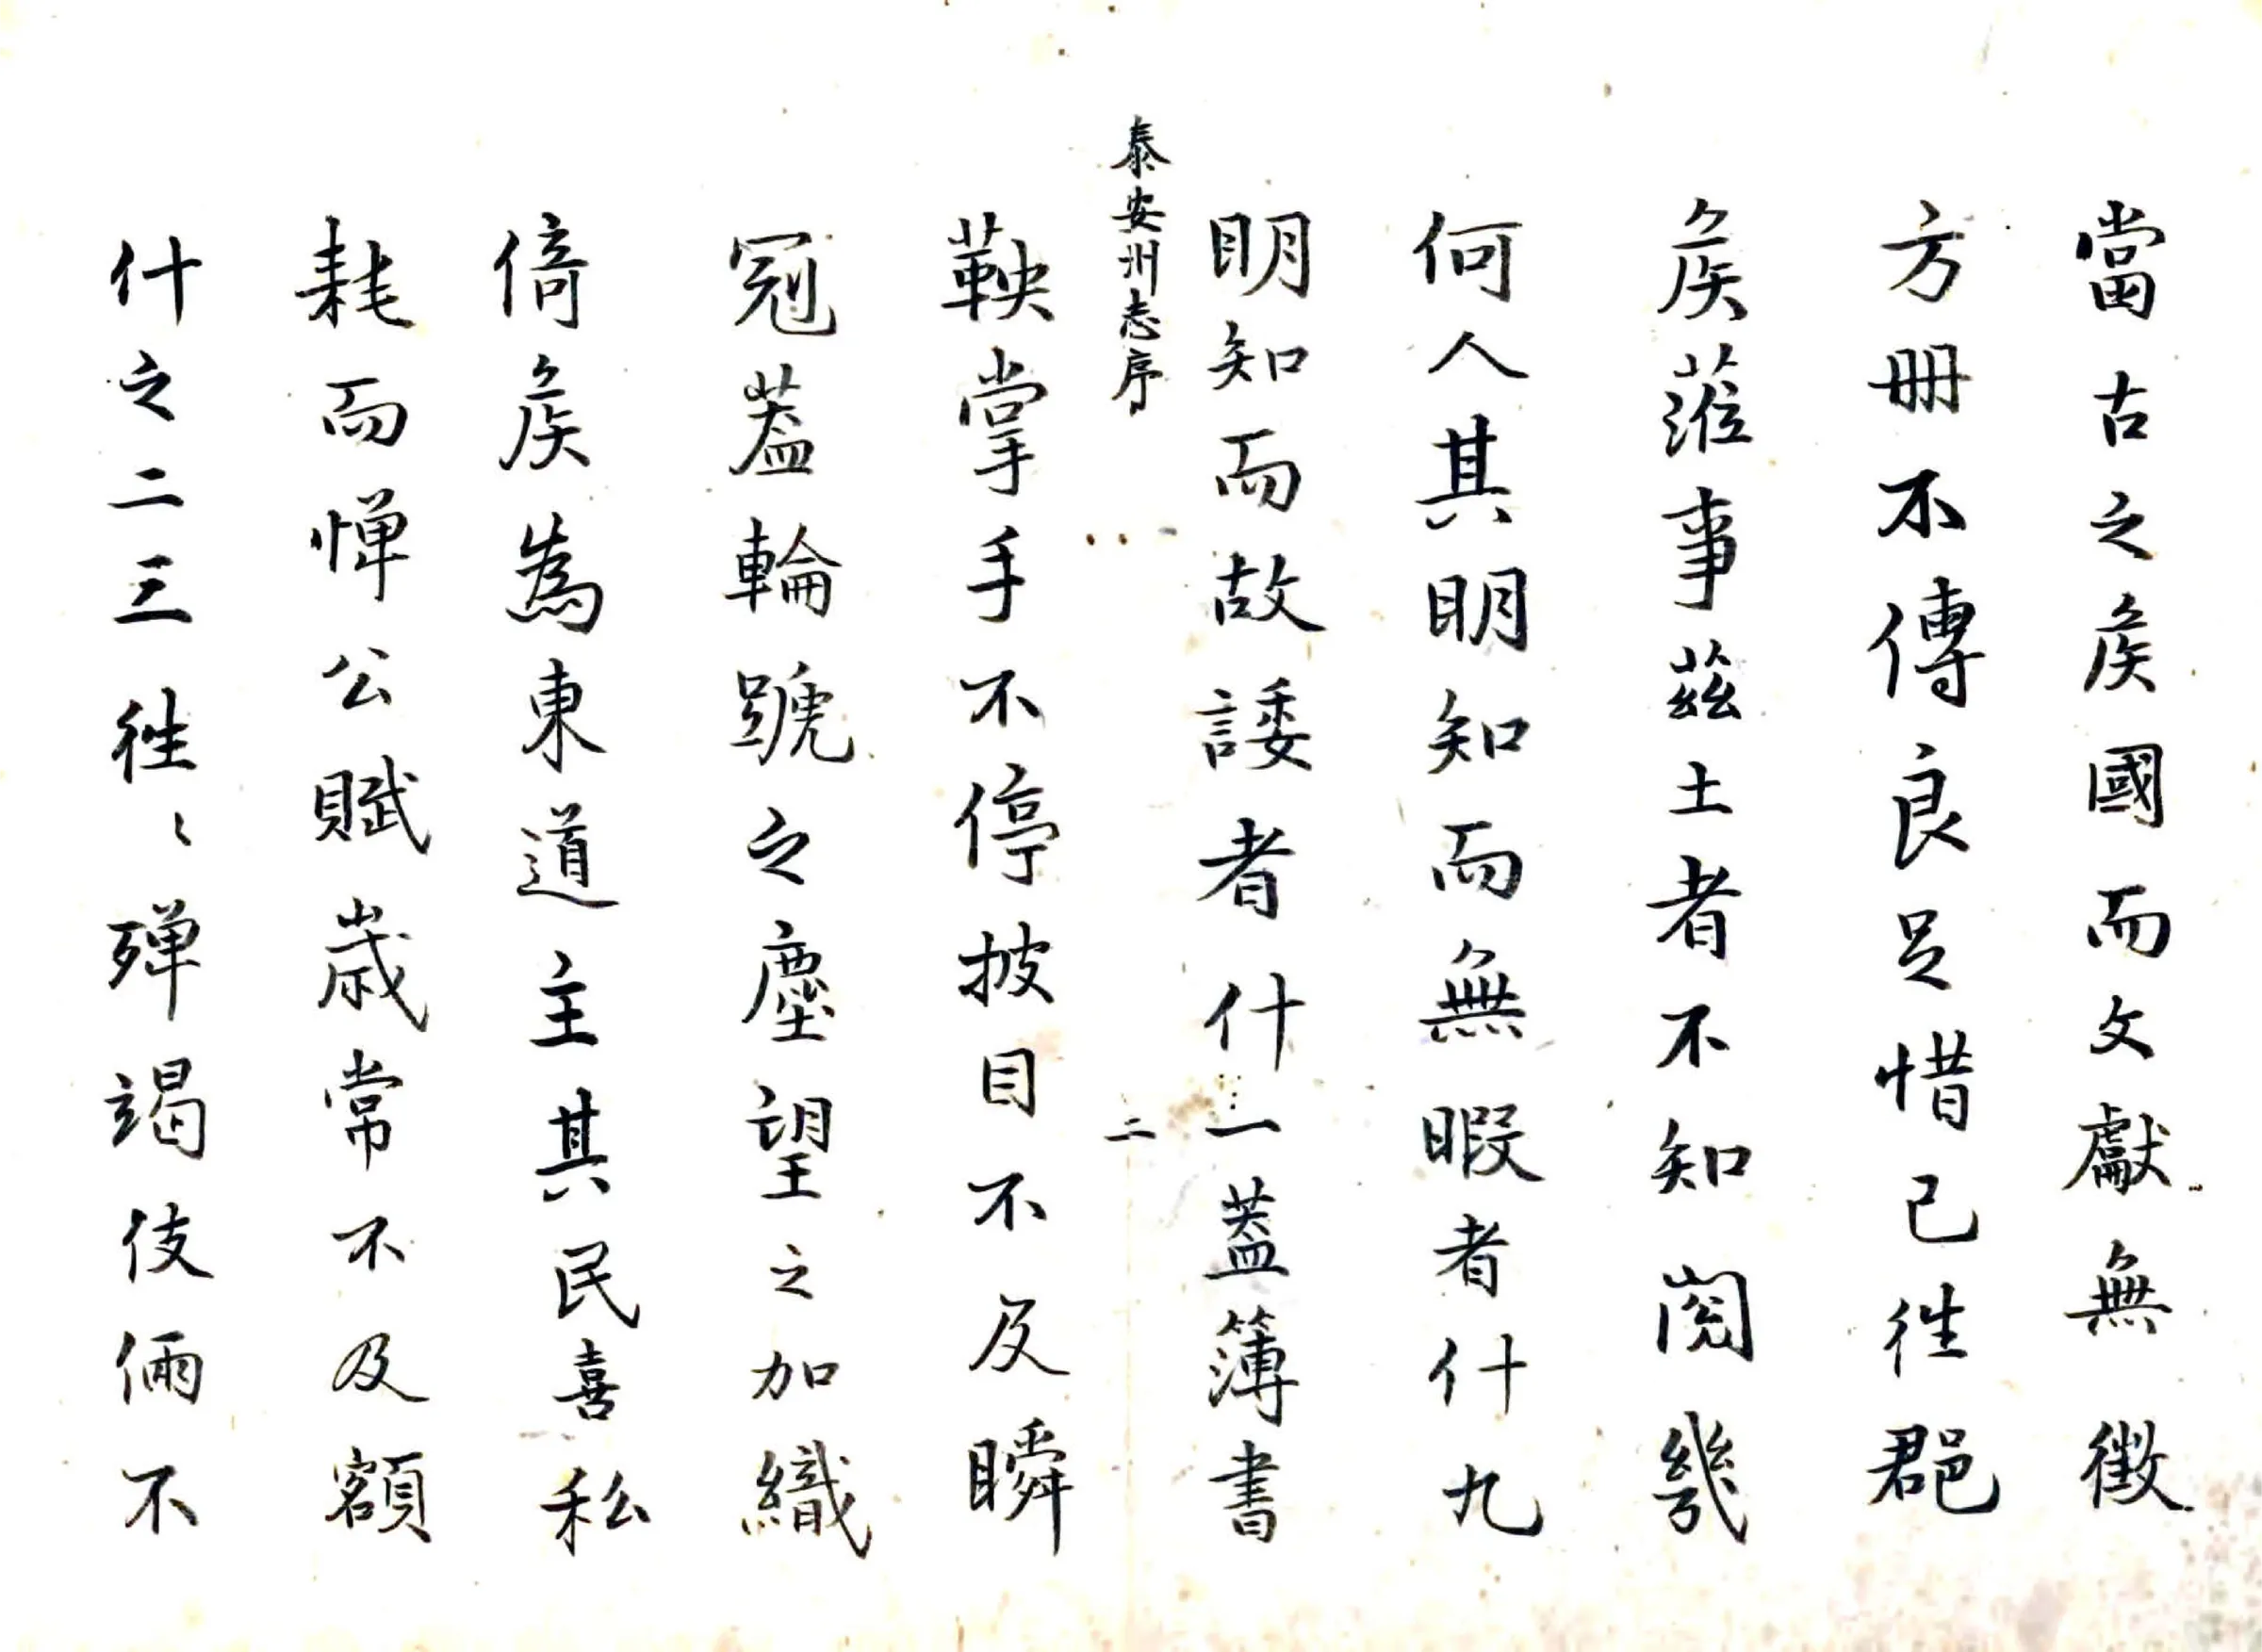 當古之矦國而文獻無徵
方冊不傳良足惜已徃郡
矦蒞事茲土者不知閱幾
何人其明知而無暇者什九
明知而故諉者什一葢簿書
泰安州志序
二
鞅掌手不停披目不及瞬
冠葢輪號之塵望之加織
倚矦為東道主其民喜私
耗而憚公賦歲常不及額
什之二三徃〻殫竭伎倆不